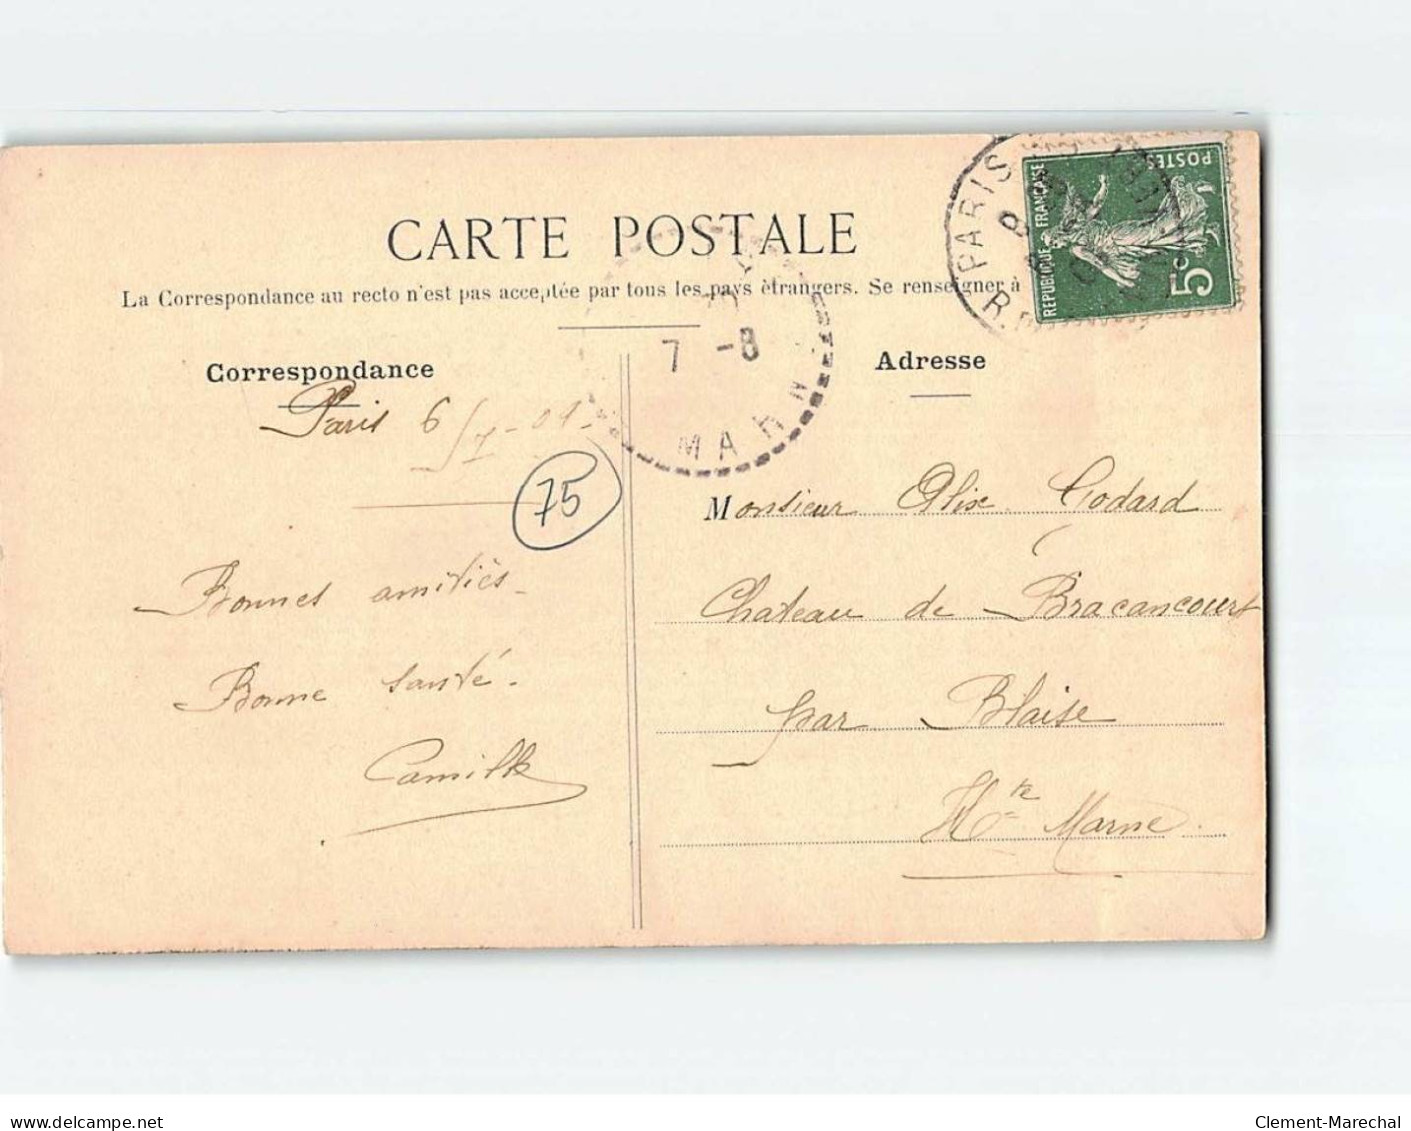 CARTE POSTALE
La Correspondance au recto n'est pas acceptée par tous les pays étrangers. Se renseigner à
Correspondance
Paris 6/7-09-
75
Bonnes amitiés-
Bonne santé-
Camille
Adresse
Monsieur Alix Godard
Chateau de Bracancourt
par Blaise
Hte Marne
PARIS
RÉPUBLIQUE FRANÇAISE
POSTES
5c
7 -8
MARN
www.delcampe.net
Clement-Marechal